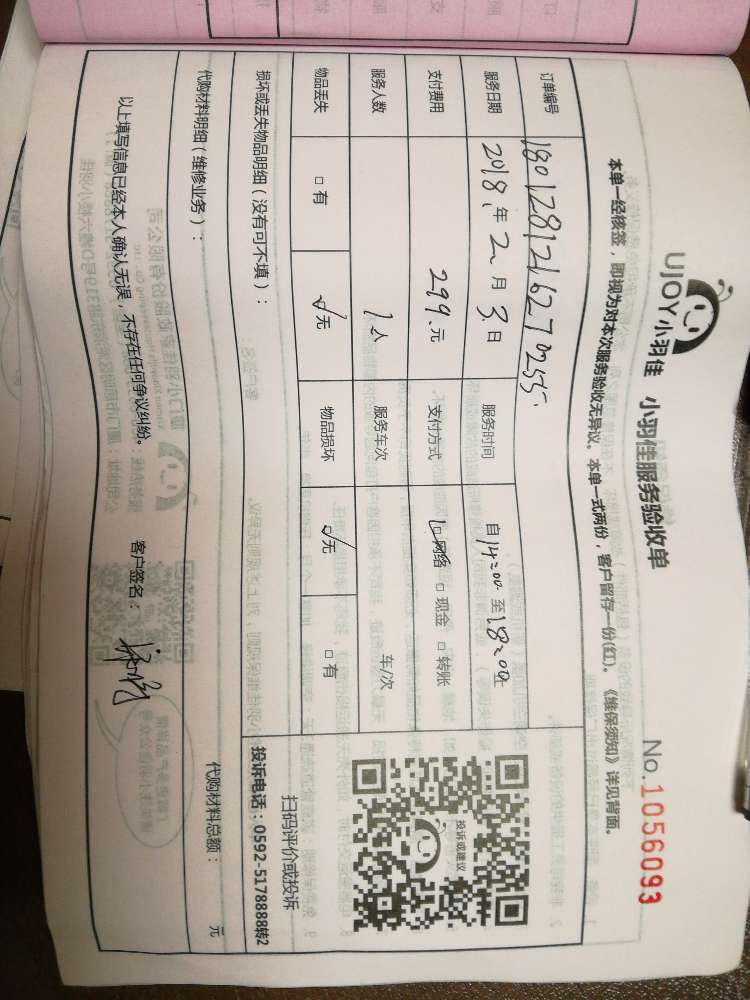 UJOY小羽佳 小羽佳服务验收单
No.1056093
本单一经核签，即视为对本次服务验收无异议。本单一式两份，客户留存一份(红)。《维保须知》详见背面。
订单编号 1801281216270255
服务日期 2018年2月3日 服务时间 自14:00至18:00止
支付费用 299元 支付方式 ☑网络 □现金 □转账
服务人数 1人 服务车次 车/次
物品丢失 □有 ☑无 物品损坏 ☑无 □有
投诉或建议
扫码评价或投诉
投诉电话：0592-5178888转2
损坏或丢失物品明细（没有可不填）：
代购材料明细（维修业务）： 代购材料总额： 元
以上填写信息已经本人确认无误，不存在任何争议纠纷。 客户签名：